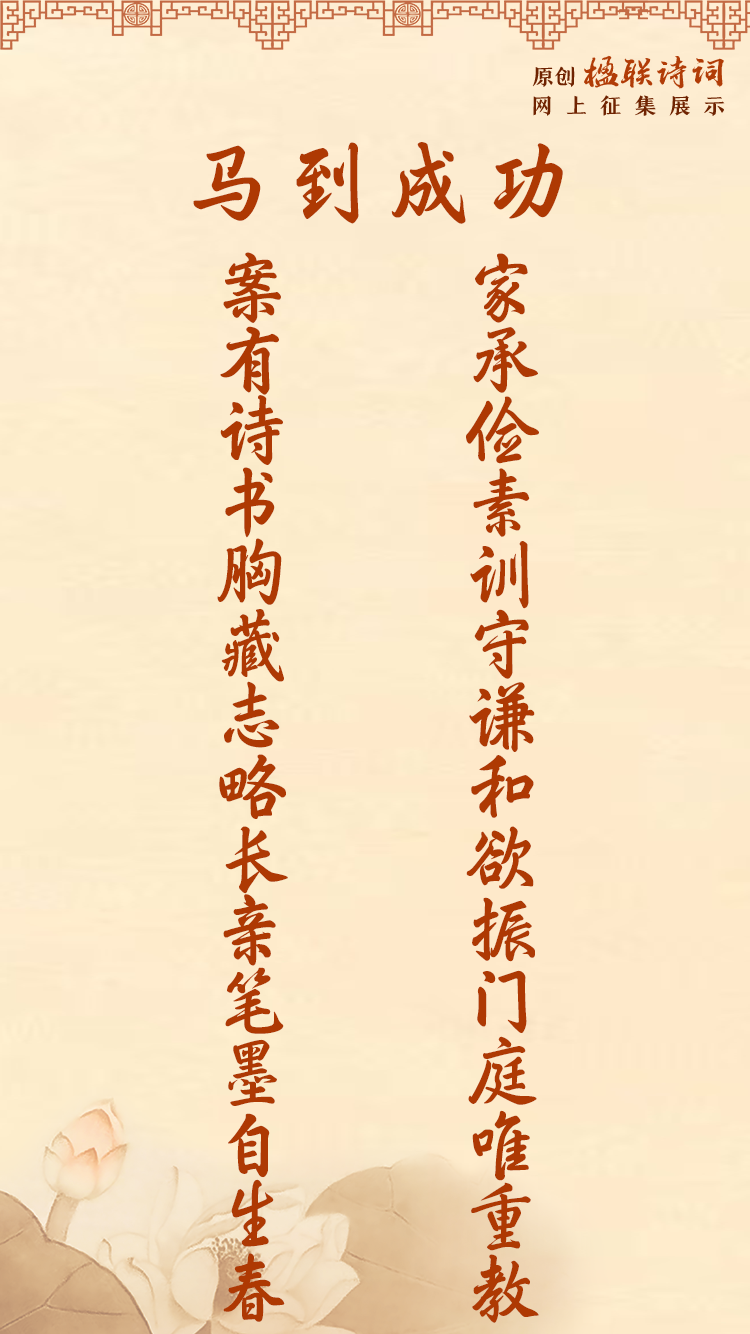 原创 楹联诗词
网上征集展示
马到成功
家承俭素训守谦和欲振门庭唯重教
案有诗书胸藏志略长亲笔墨自生春